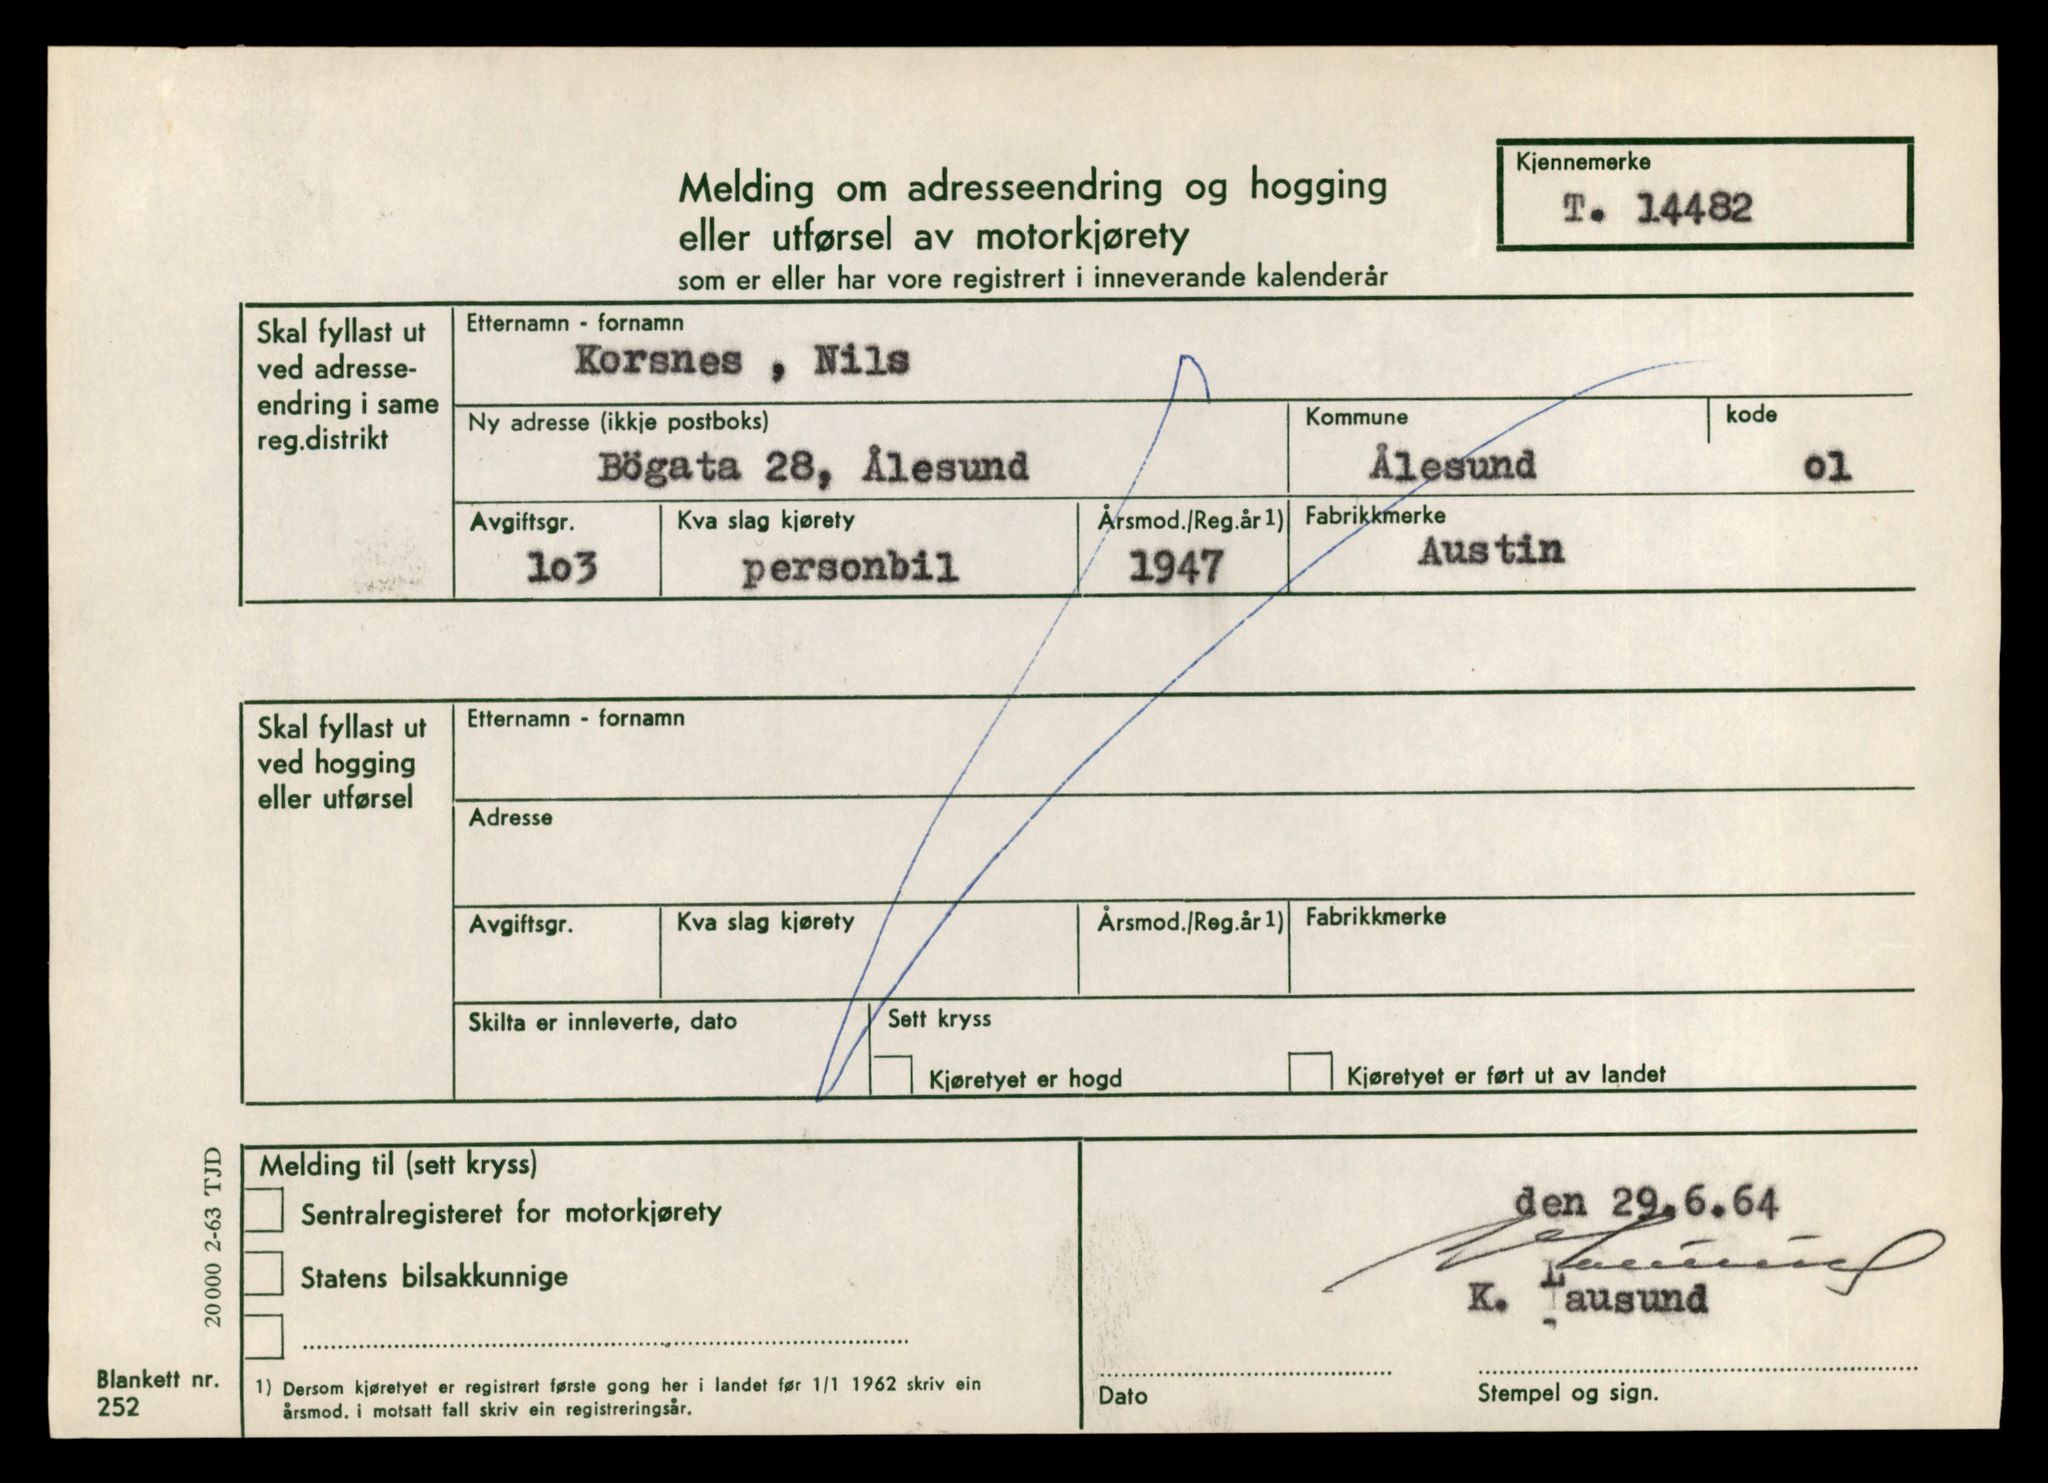 Kjennemerke
T. 14482
Melding om adresseendring og hogging
eller utførsel av motorkjørety
som er eller har vore registrert i inneverande kalenderår
Skal fyllast ut
ved adresse-
endring i same
reg.distrikt
Etternamn - fornamn
Korsnes , Nils
Ny adresse (ikkje postboks)
Bögata 28, Ålesund
Kommune
Ålesund
kode
o1
Avgiftsgr.
1o3
Kva slag kjørety
personbil
Årsmod./Reg.år 1)
1947
Fabrikkmerke
Austin
Skal fyllast ut
ved hogging
eller utførsel
Etternamn - fornamn
Adresse
Avgiftsgr.
Kva slag kjørety
Årsmod./Reg.år 1)
Fabrikkmerke
Skilta er innleverte, dato
Sett kryss
Kjøretyet er hogd
Kjøretyet er ført ut av landet
Melding til (sett kryss)
Sentralregisteret for motorkjørety
Statens bilsakkunnige
1) Dersom kjøretyet er registrert første gong her i landet før 1/1 1962 skriv ein
årsmod. i motsatt fall skriv ein registreringsår.
den 29.6.64
K. Lausund
Dato
Stempel og sign.
20 000 2-63 TJD
Blankett nr.
252